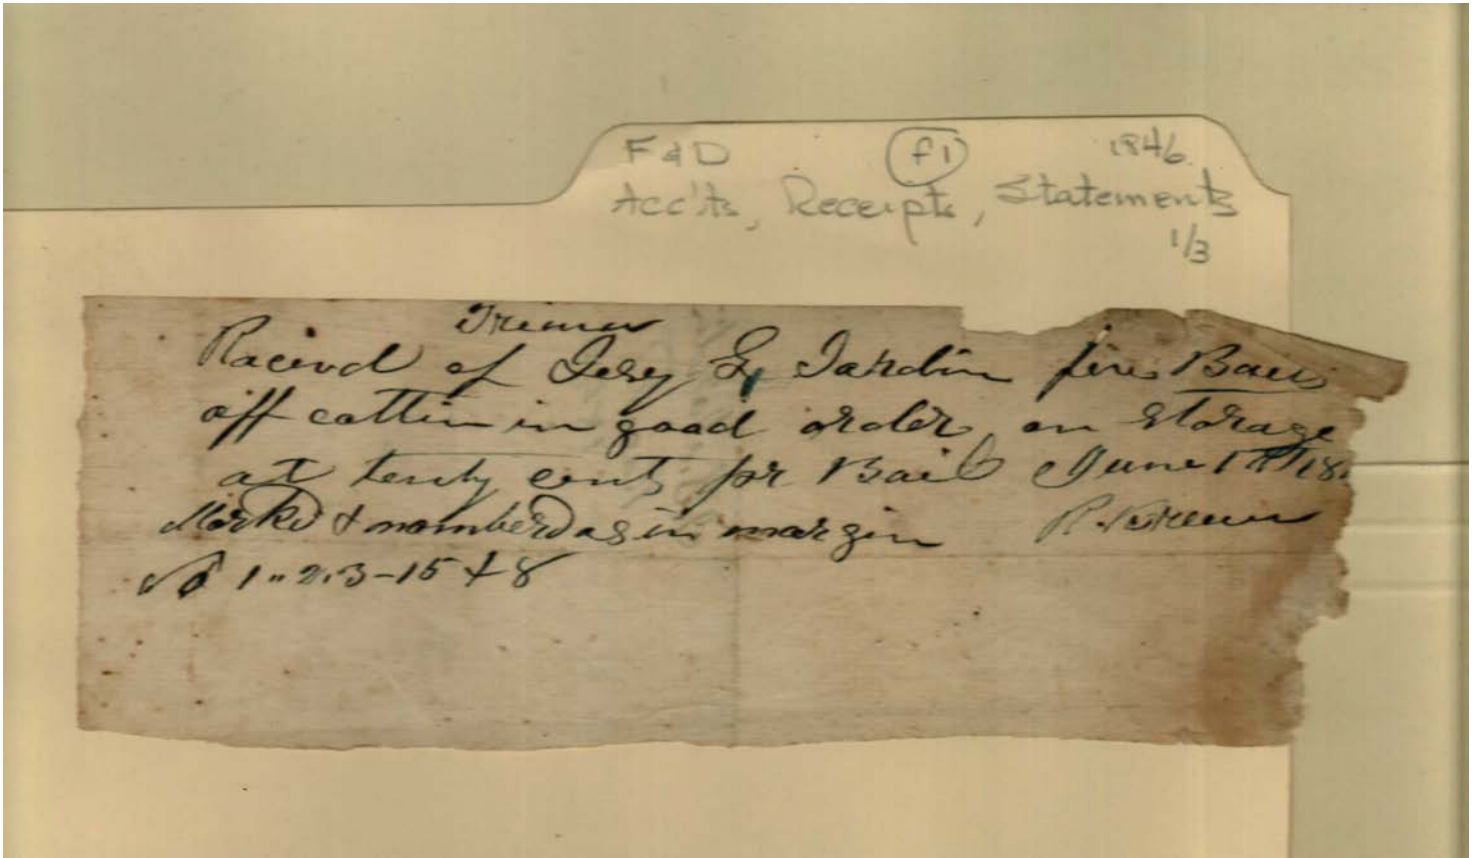 F & D f1 1846
Acc'ts, Receipts, Statements
1/3
Racivd of Jesy G Jardin five Bails
off cottin in goad order on storage
at tenty cents pr Bail June 1st 18
Markd & nomberd as in margin
No 1 " 2. 3 - 15 & 8